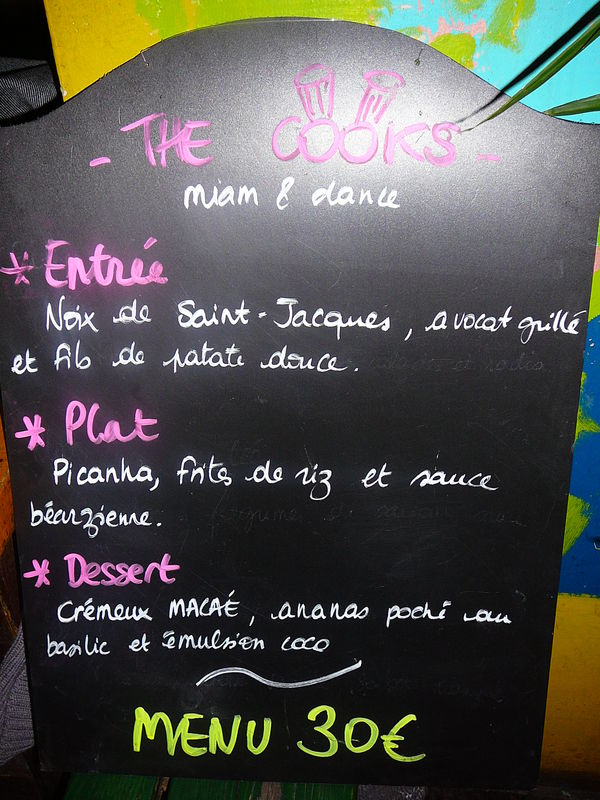 - THE COOKS -
miam & dance
* Entrée
Noix de Saint-Jacques, avocat grillé
et fib de patate douce.
* Plat
Picanha, frites de riz et sauce
béarzienne.
* Dessert
Crémeux MACAÉ, ananas poché au
basilic et émulsion coco
MENU 30€